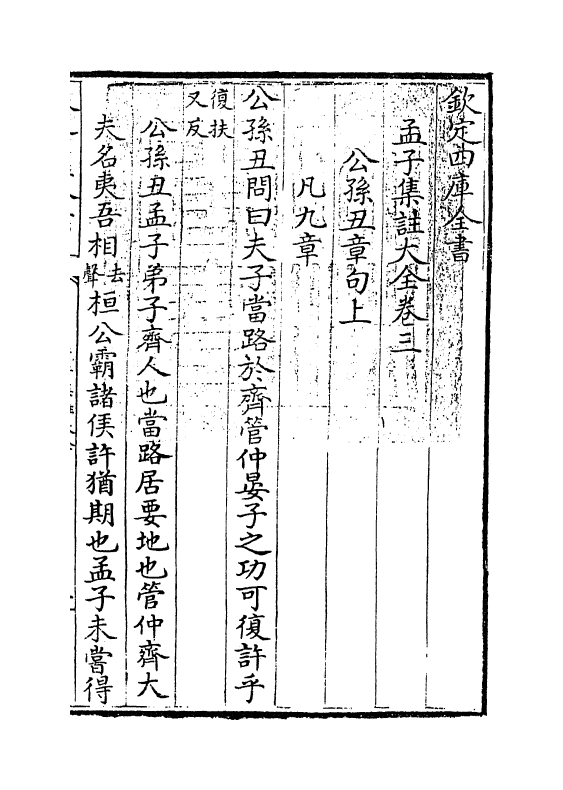 欽定四庫全書
孟子集註大全卷三
公孫丑章句上
凡九章
公孫丑問曰夫子當路於齊管仲晏子之功可復許乎
復扶
又反
公孫丑孟子弟子齊人也當路居要地也管仲齊大
夫名夷吾相去聲桓公霸諸侯許猶期也孟子未嘗得